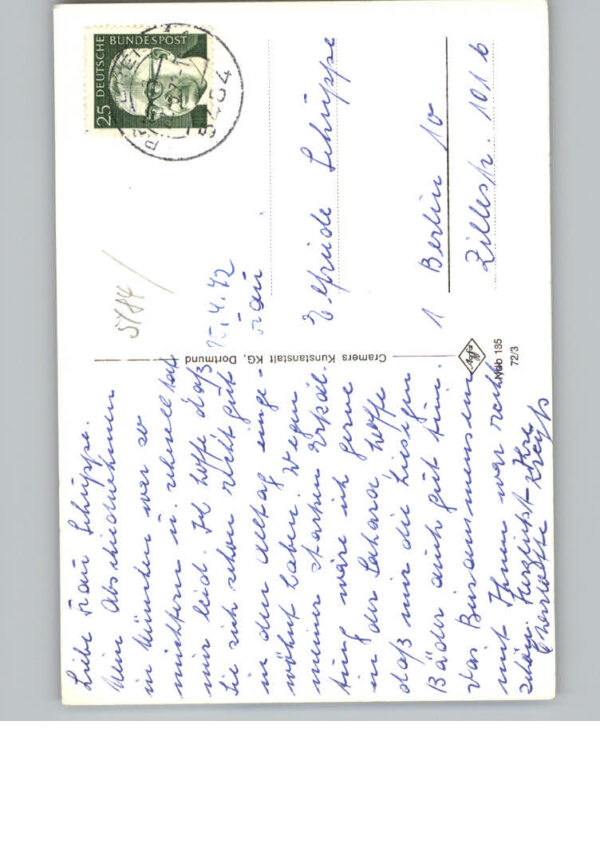 Liebe Frau Schüppe.
Mein Abschiednehmen
in München war so
nüchtern u. schnell tat
mir leid. Ich hoffe daß
Sie sich schon recht gut
in den Alltag einge-
wöhnt haben. Wegen
meiner starken Erkäl-
tung wäre ich gerne
in der Sahara hoffe
daß mir die hiesigen
Bäder auch gut tun.
Das Beisammensein
mit Ihnen war recht
schön. Herzlichst Ihre
Charlotte
4.72
Frau
Elfriede Schüppe
1 Berlin 10
Zillestr. 101 b
25 DEUTSCHE
BUNDESPOST
5484
5484
Cramers Kunstanstalt KG, Dortmund
Agfa
Wbb 135
72/3